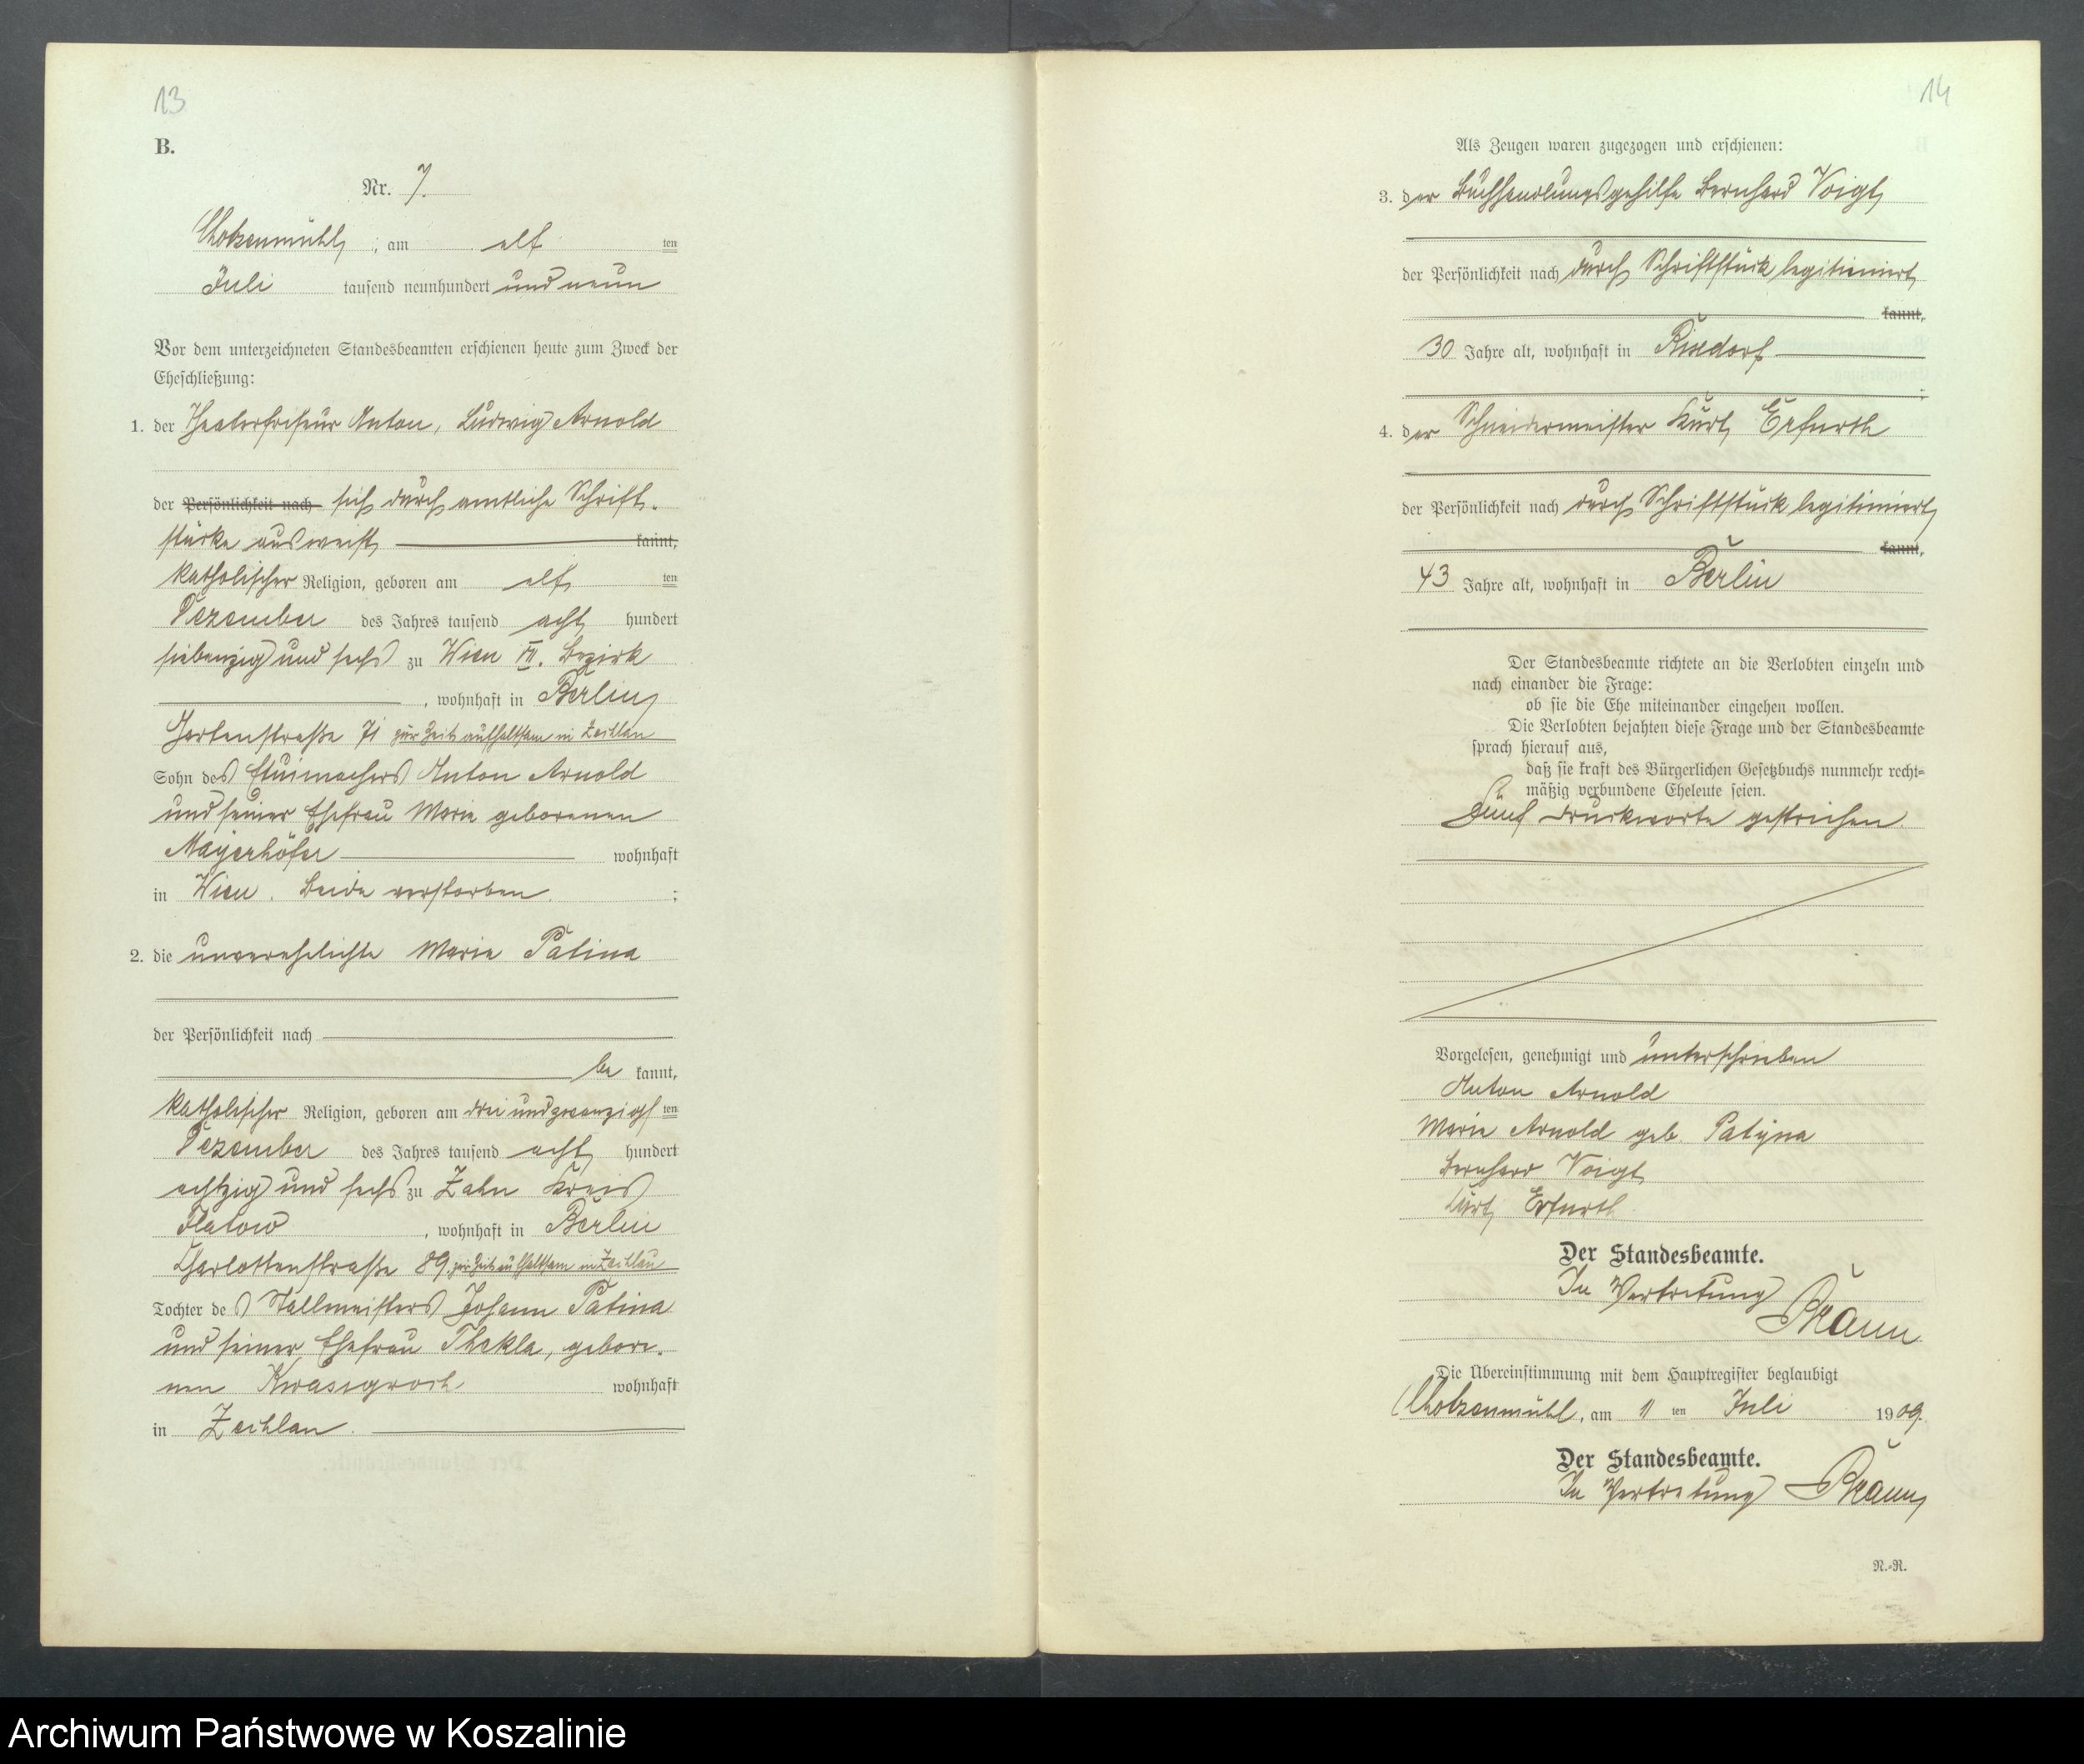 13
B.
Nr. 7.
Chotzenmühl, am elf ten
Juli tausend neunhundert und neun
Vor dem unterzeichneten Standesbeamten erschienen heute zum Zweck der
Eheschließung:
1. der Theaterfriseur Anton, Ludwig Arnold
der Persönlichkeit nach sich durch amtliche Schrift-
stücke ausweist kannt,
katholischer Religion, geboren am elf ten
Dezember des Jahres tausend acht hundert
siebenzig und sechs zu Wien VII. Bezirk
, wohnhaft in Berlin,
Gartenstraße 71 zur Zeit aufhaltsam in Zechlau
Sohn des Etuimachers Anton Arnold
und seiner Ehefrau Marie geborenen
Mayerhöfer wohnhaft
in Wien. Beide verstorben. ;
2. die unverehelichte Marie Patina
der Persönlichkeit nach
be kannt,
katholischer Religion, geboren am drei und zwanzigsten
Dezember des Jahres tausend acht hundert
achtzig und sechs zu Zahn Kreis
Flatow , wohnhaft in Berlin
Charlottenstraße 89 zur Zeit aufhaltsam in Zechlau
Tochter des Stallmeisters Johann Patina
und seiner Ehefrau Thekla, gebore-
nen wohnhaft
in Zechlau.
14
Als Zeugen waren zugezogen und erschienen:
3. der Buchhandlungsgehilfe Bernhard Voigt,
der Persönlichkeit nach durch Schriftstück legitimiert,
kannt,
30 Jahre alt, wohnhaft in Rixdorf
;
4. der Schneidermeister Kurt Erfurth
der Persönlichkeit nach durch Schriftstück legitimiert,
kannt,
43 Jahre alt, wohnhaft in Berlin
Der Standesbeamte richtete an die Verlobten einzeln und
nach einander die Frage:
ob sie die Ehe miteinander eingehen wollen.
Die Verlobten bejahten diese Frage und der Standesbeamte
sprach hierauf aus,
daß sie kraft des Bürgerlichen Gesetzbuchs nunmehr recht=
mäßig verbundene Eheleute seien.
Fünf Druckworte gestrichen.
Vorgelesen, genehmigt und unterschrieben
Anton Arnold
Marie Arnold geb. Patyna
Bernhard Voigt
Kurt Erfurth
Der Standesbeamte.
In Vertretung
Die Übereinstimmung mit dem Hauptregister beglaubigt
Chotzenmühl, am 11 ten Juli 1909.
Der Standesbeamte.
In Vertretung
N.-R.
Archiwum Państwowe w Koszalinie